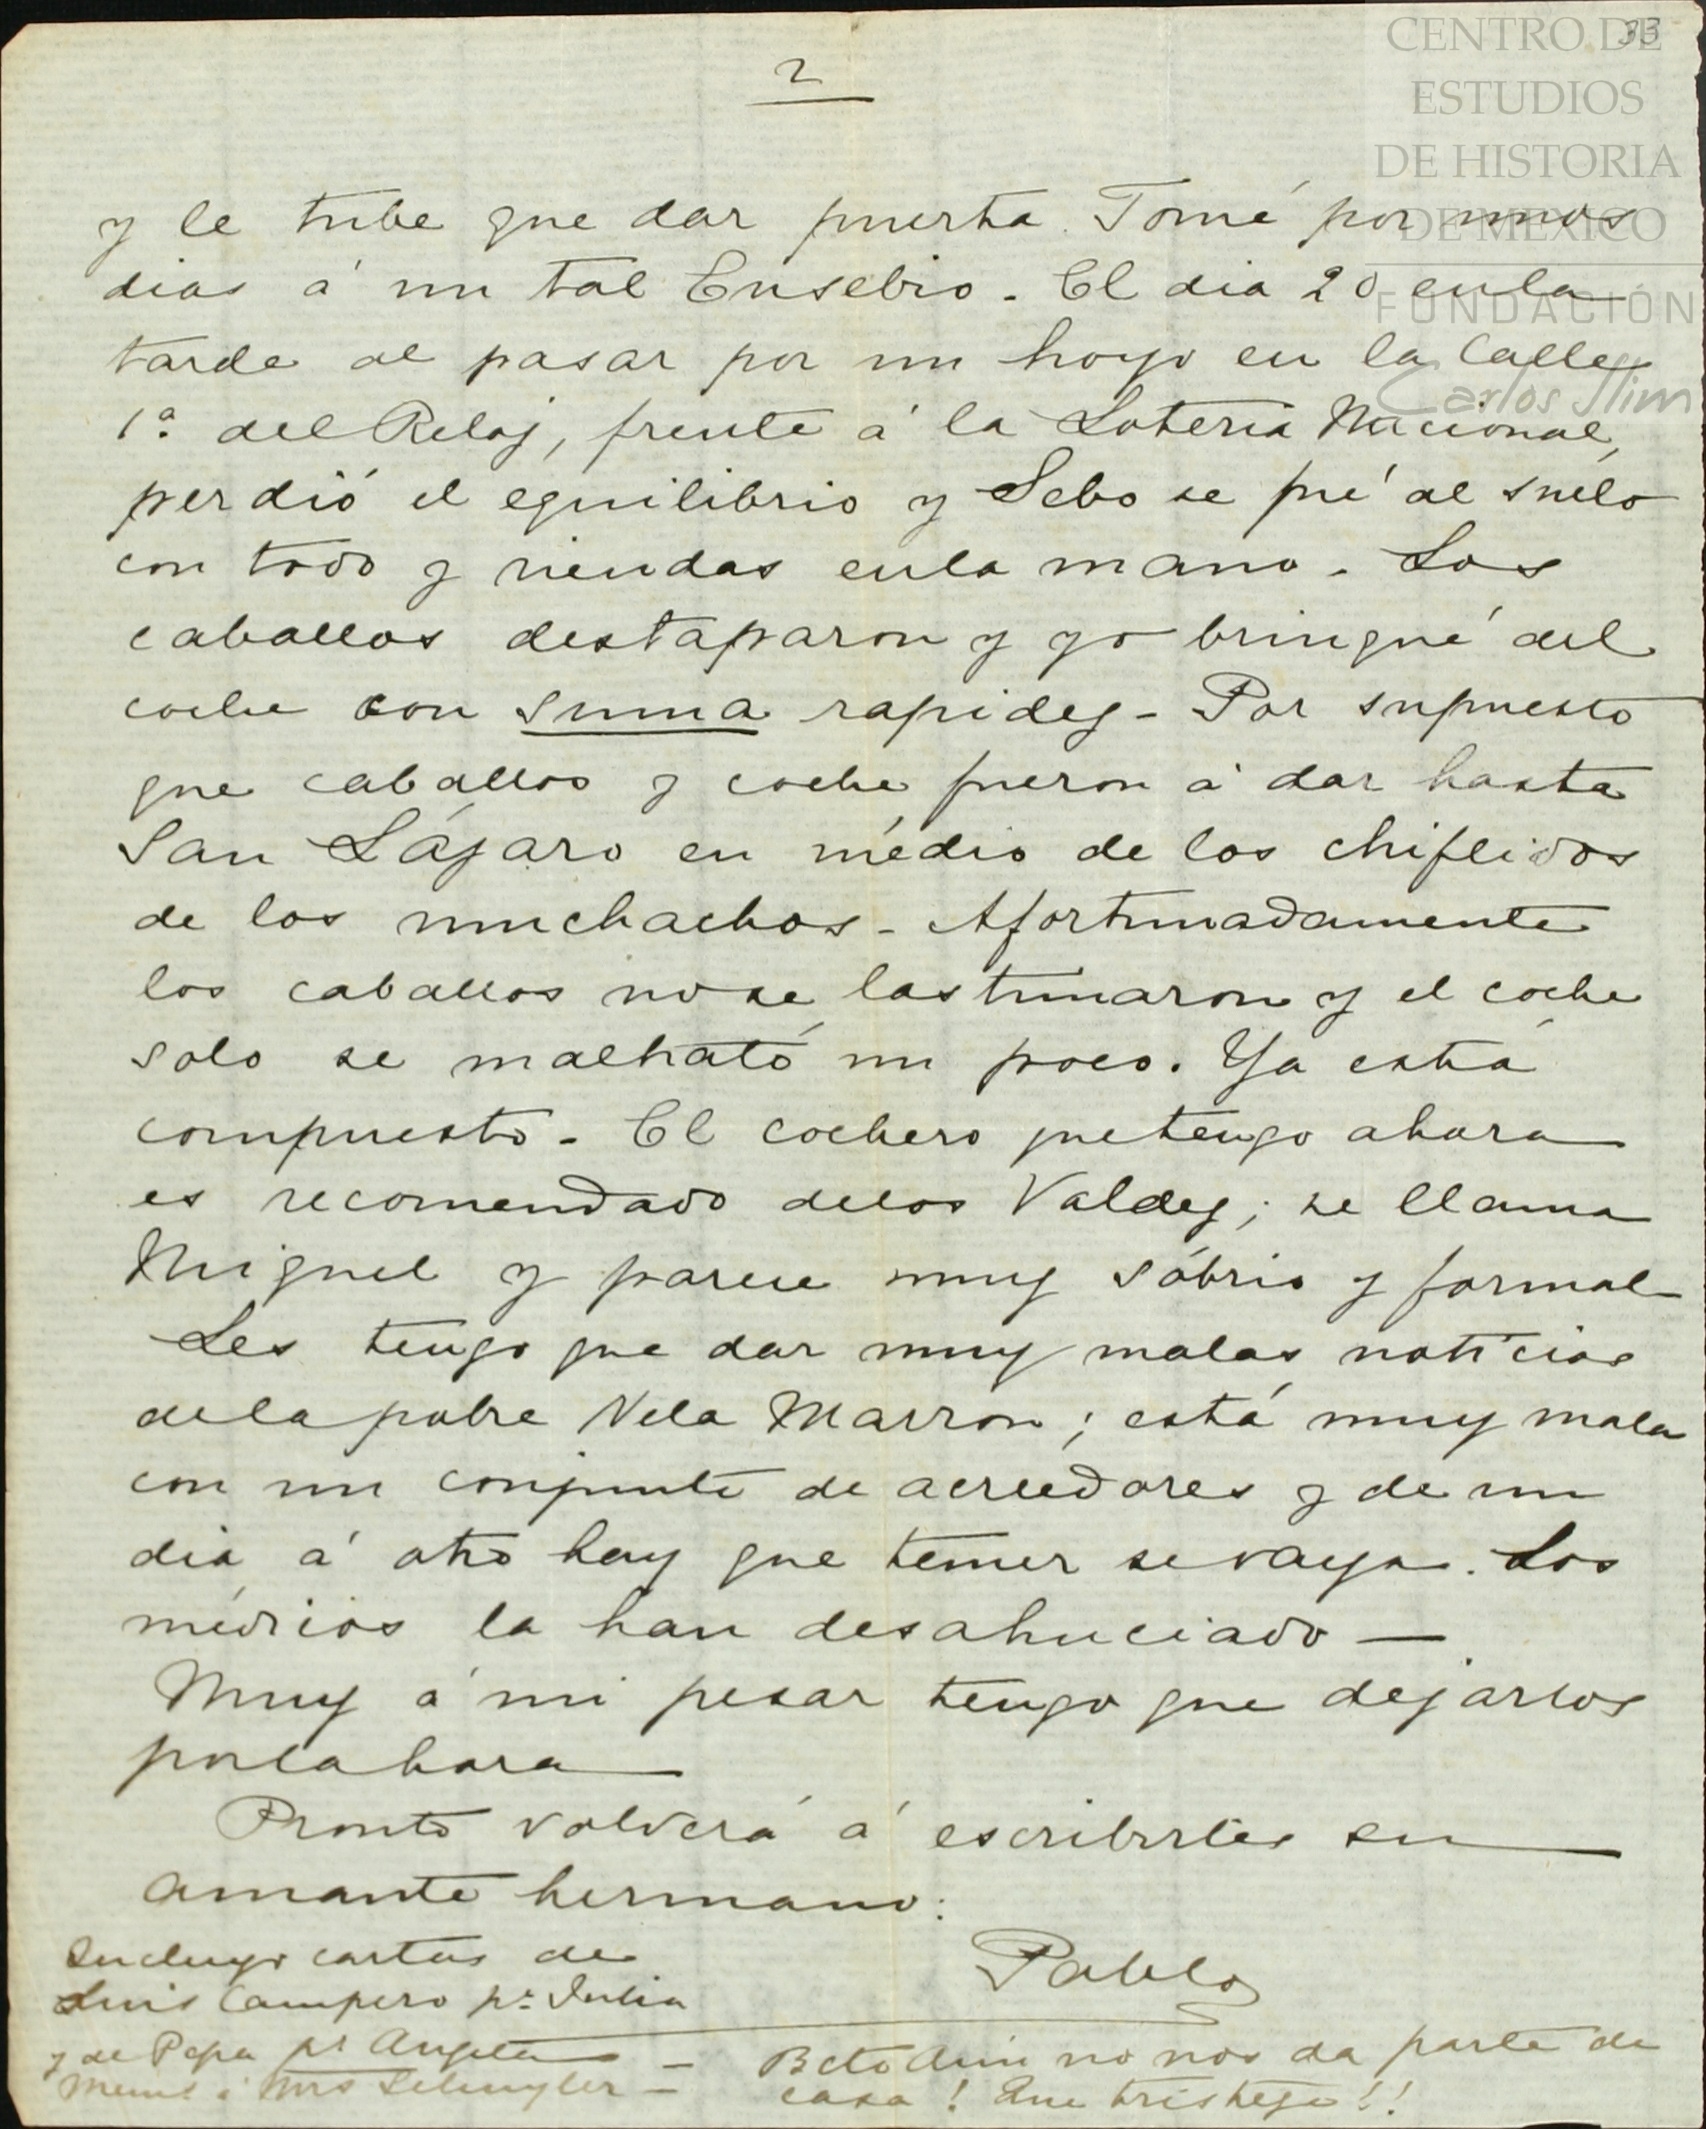 33
CENTRO DE
ESTUDIOS
DE HISTORIA
DE MÉXICO
FUNDACIÓN
Carlos Slim
2
y le tube que dar puerta. Tomé por unos
dias á un tal Eusebio. El dia 20 en la
tarde al pasar por un hoyo en la Calle
1ª del Reloj, frente á la Loteria Nacional,
perdió el equilibrio y Sebo se fué al suélo
con todo y riendas en la mano. Los
caballos destaparon y yo brinqué del
coche con suma rapidez - Por supuesto
que caballos y coche fueron á dar hasta
San Lázaro en médio de los chiflidos
de los muchachos - Afortunadamente
los caballos no se lastimaron y el coche
solo se maltrató un poco. Ya está
compuesto - El cochero que tengo ahora
es recomendado de los Valdez; se llama
Miguel y parece muy sóbrio y formal
Les tengo que dar muy malas noticias
de la pobre Vela Marron; está muy mala
con un conjunto de acreedores y de un
dia á otro hay que temer se vaya. Los
médicos la han desahuciado —
Muy á mi pesar tengo que dejarlos
por la hora
Pronto volverá á escribirles su
amante hermano:
Pablo
Incluyo cartas de
Luis Campero pª Julia
y de Pepa pª Angela
á Mrs Schuyler -
Beto Aun no nos da parte de
casa! Que tristeza!!